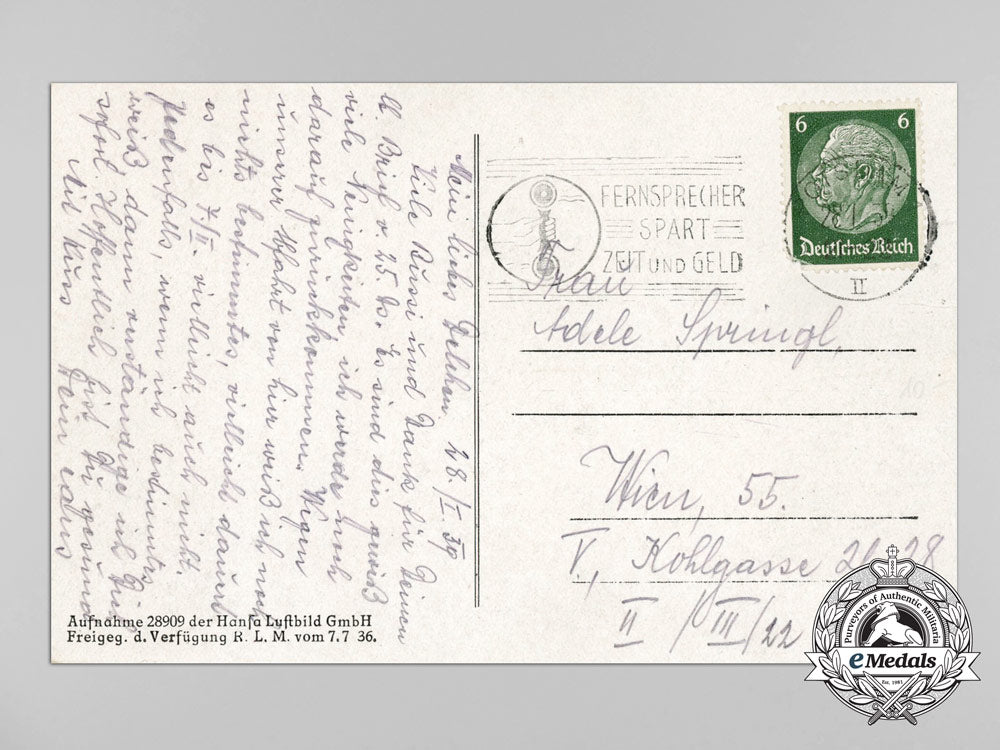 Mein liebes Delchen 28./I. 39
Viele Bussi und Dank für Deinen
lb. Brief v 25. ds. Es sind dies gewiß
viele Neuigkeiten, ich werde noch
darauf zurückkommen. Wegen
unserer Abfahrt von hier weiß ich noch
nichts bestimmtes, vielleicht dauert
es bis 7/II vielleicht auch nicht.
Jedenfalls wenn ich bestimmtes
weiß dann verständige ich Dich
sofort. Hoffentlich bist Du gesund
Mit Kuss Dein
Aufnahme 28909 der Hansa Luftbild GmbH
Freigeg. d. Verfügung R. L. M. vom 7.7 36.
FERNSPRECHER
SPART
ZEIT UND GELD
6 6
Deutsches Reich
II
Frau
Adele Springl,
Wien, 55.
V., Kohlgasse 28
II / III / 22
Purveyors of Authentic Militaria
eMedals
Est. 1981